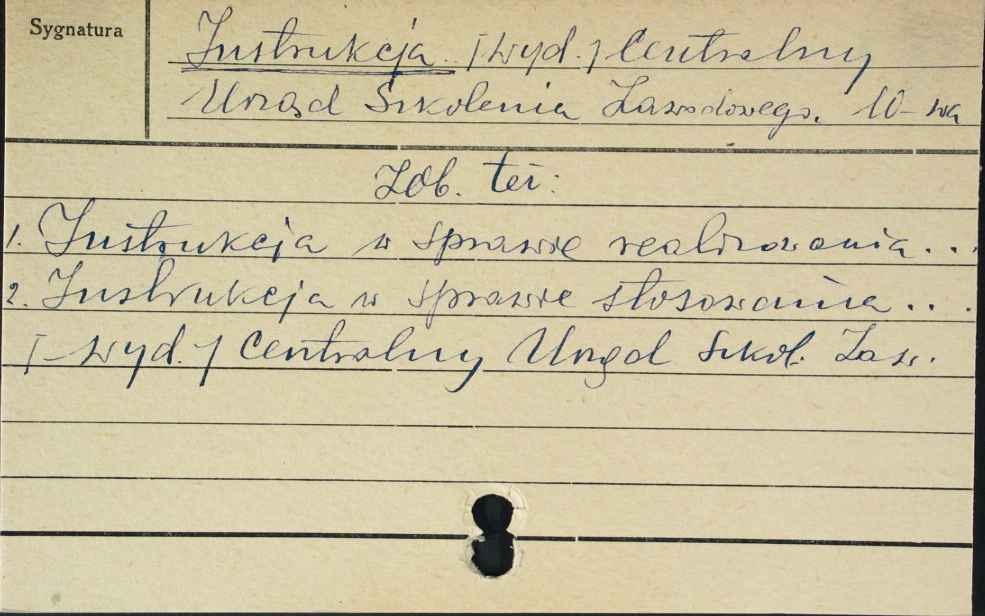 Sygnatura
Instrukcja [wyd.] Centralny
Urząd Szkolenia Zawodowego. W-wa
Zob. też:
1. Instrukcja w sprawie realizowania...
2. Instrukcja w sprawie stosowania...
[wyd.] Centralny Urząd Szkol. Zaw.